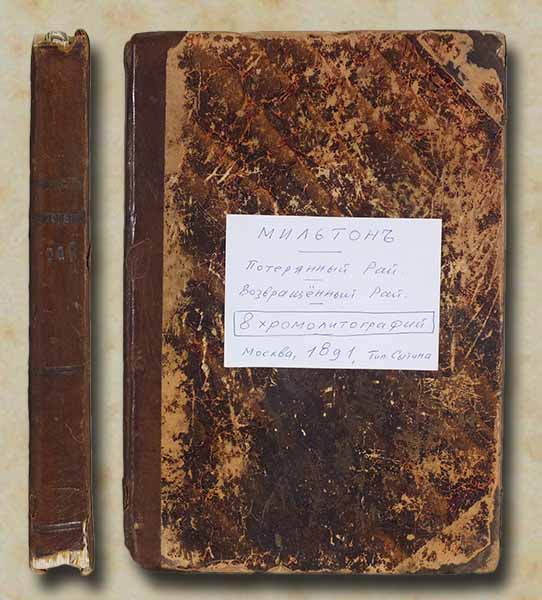 рай
МИЛЬТОНЪ
Потерянный Рай.
Возвращённый Рай.
8 хромолитографий
Москва, 1891, Тип. Сытина